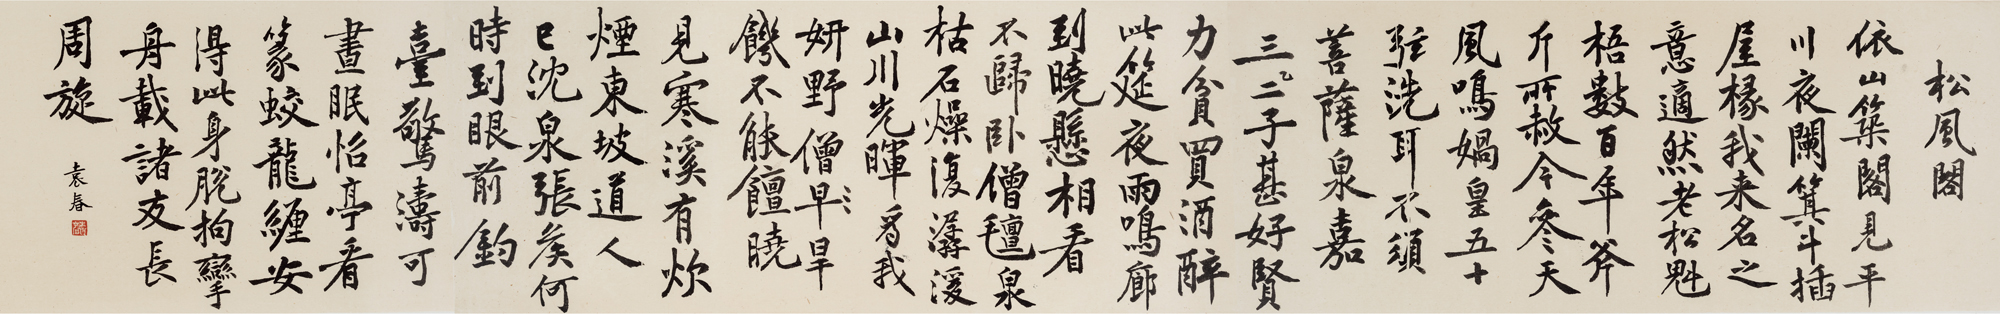 松風閣
依山築閣見平
川夜闌箕斗插
屋椽我来名之
意適然老松魁
梧數百年斧
斤所赦今參天
風鳴媧皇五十
弦洗耳不須
菩薩泉嘉
三二子甚好賢
力貧買酒醉
此筵夜雨鳴廊
到曉懸相看
不歸卧僧氊泉
枯石燥復潺湲
山川光暉為我
妍野僧早旱
饑不能饘曉
見寒溪有炊
煙東坡道人
已沈泉張侯何
時到眼前釣
臺驚濤可
晝眠怡亭看
篆蛟龍纏安
得此身脫拘攣
舟載諸友長
周旋
袁春